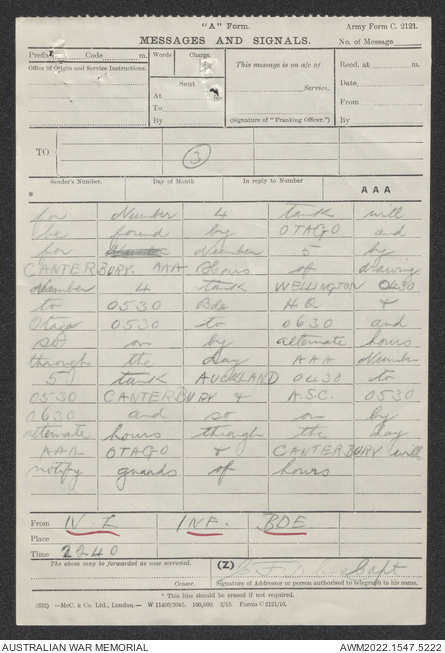 "A" Form.
Army Form C. 2121.
MESSAGES AND SIGNALS.
No. of Message
Prefix Code m.
Words Charge.
This message is on a/c of
Recd. at m.
Office of Origin and Service Instructions.
Sent
Date
At m.
Service.
From
To
By
(Signature of "Franking Officer.")
By
TO
3
Sender's Number.
Day of Month
In reply to Number
AAA
*
for Number 4 tank will
be found by OTAGO and
for Number 5 by
CANTERBURY. AAA Hours of drawing
Number 4 tank WELLINGTON 0430
to 0530 Bde HQ &
Otago 0530 to 0630 and
so on by alternate hours
through the day AAA Number
5 tank AUCKLAND 0430 to
0530 CANTERBURY & A.S.C. 0530
0630 and so on by
alternate hours through the day
AAA OTAGO & CANTERBURY will
notify guards of hours
From N.Z INF. BDE.
Place
Time 2240
The above may be forwarded as now corrected.
(Z)
Capt
Censor.
Signature of Addressor or person authorised to telegraph in his name.
* This line should be erased if not required.
(632) —McC. & Co. Ltd., London.— W 11400/2045. 100,000. 2/15. Forms C 2121/10.
AUSTRALIAN WAR MEMORIAL
AWM2022.1547.5222